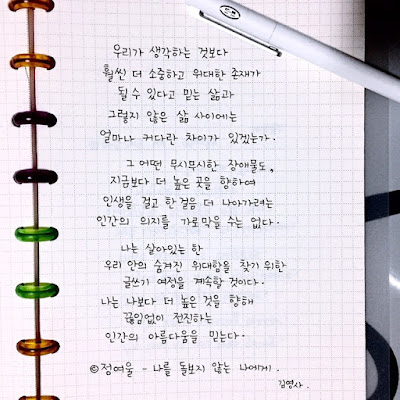 우리가 생각하는 것보다
훨씬 더 소중하고 위대한 존재가
될 수 있다고 믿는 삶과
그렇지 않은 삶 사이에는
얼마나 커다란 차이가 있겠는가.
그 어떤 무시무시한 장애물도,
지금보다 더 높은 곳을 향하여
인생을 걸고 한 걸음 더 나아가려는
인간의 의지를 가로막을 수는 없다.
나는 살아있는 한
우리 안의 숨겨진 위대함을 찾기 위한
글쓰기 여정을 계속할 것이다.
나는 나보다 더 높은 것을 향해
끊임없이 전진하는
인간의 아름다움을 믿는다.
©정여울 - 나를 돌보지 않는 나에게.
김영사.